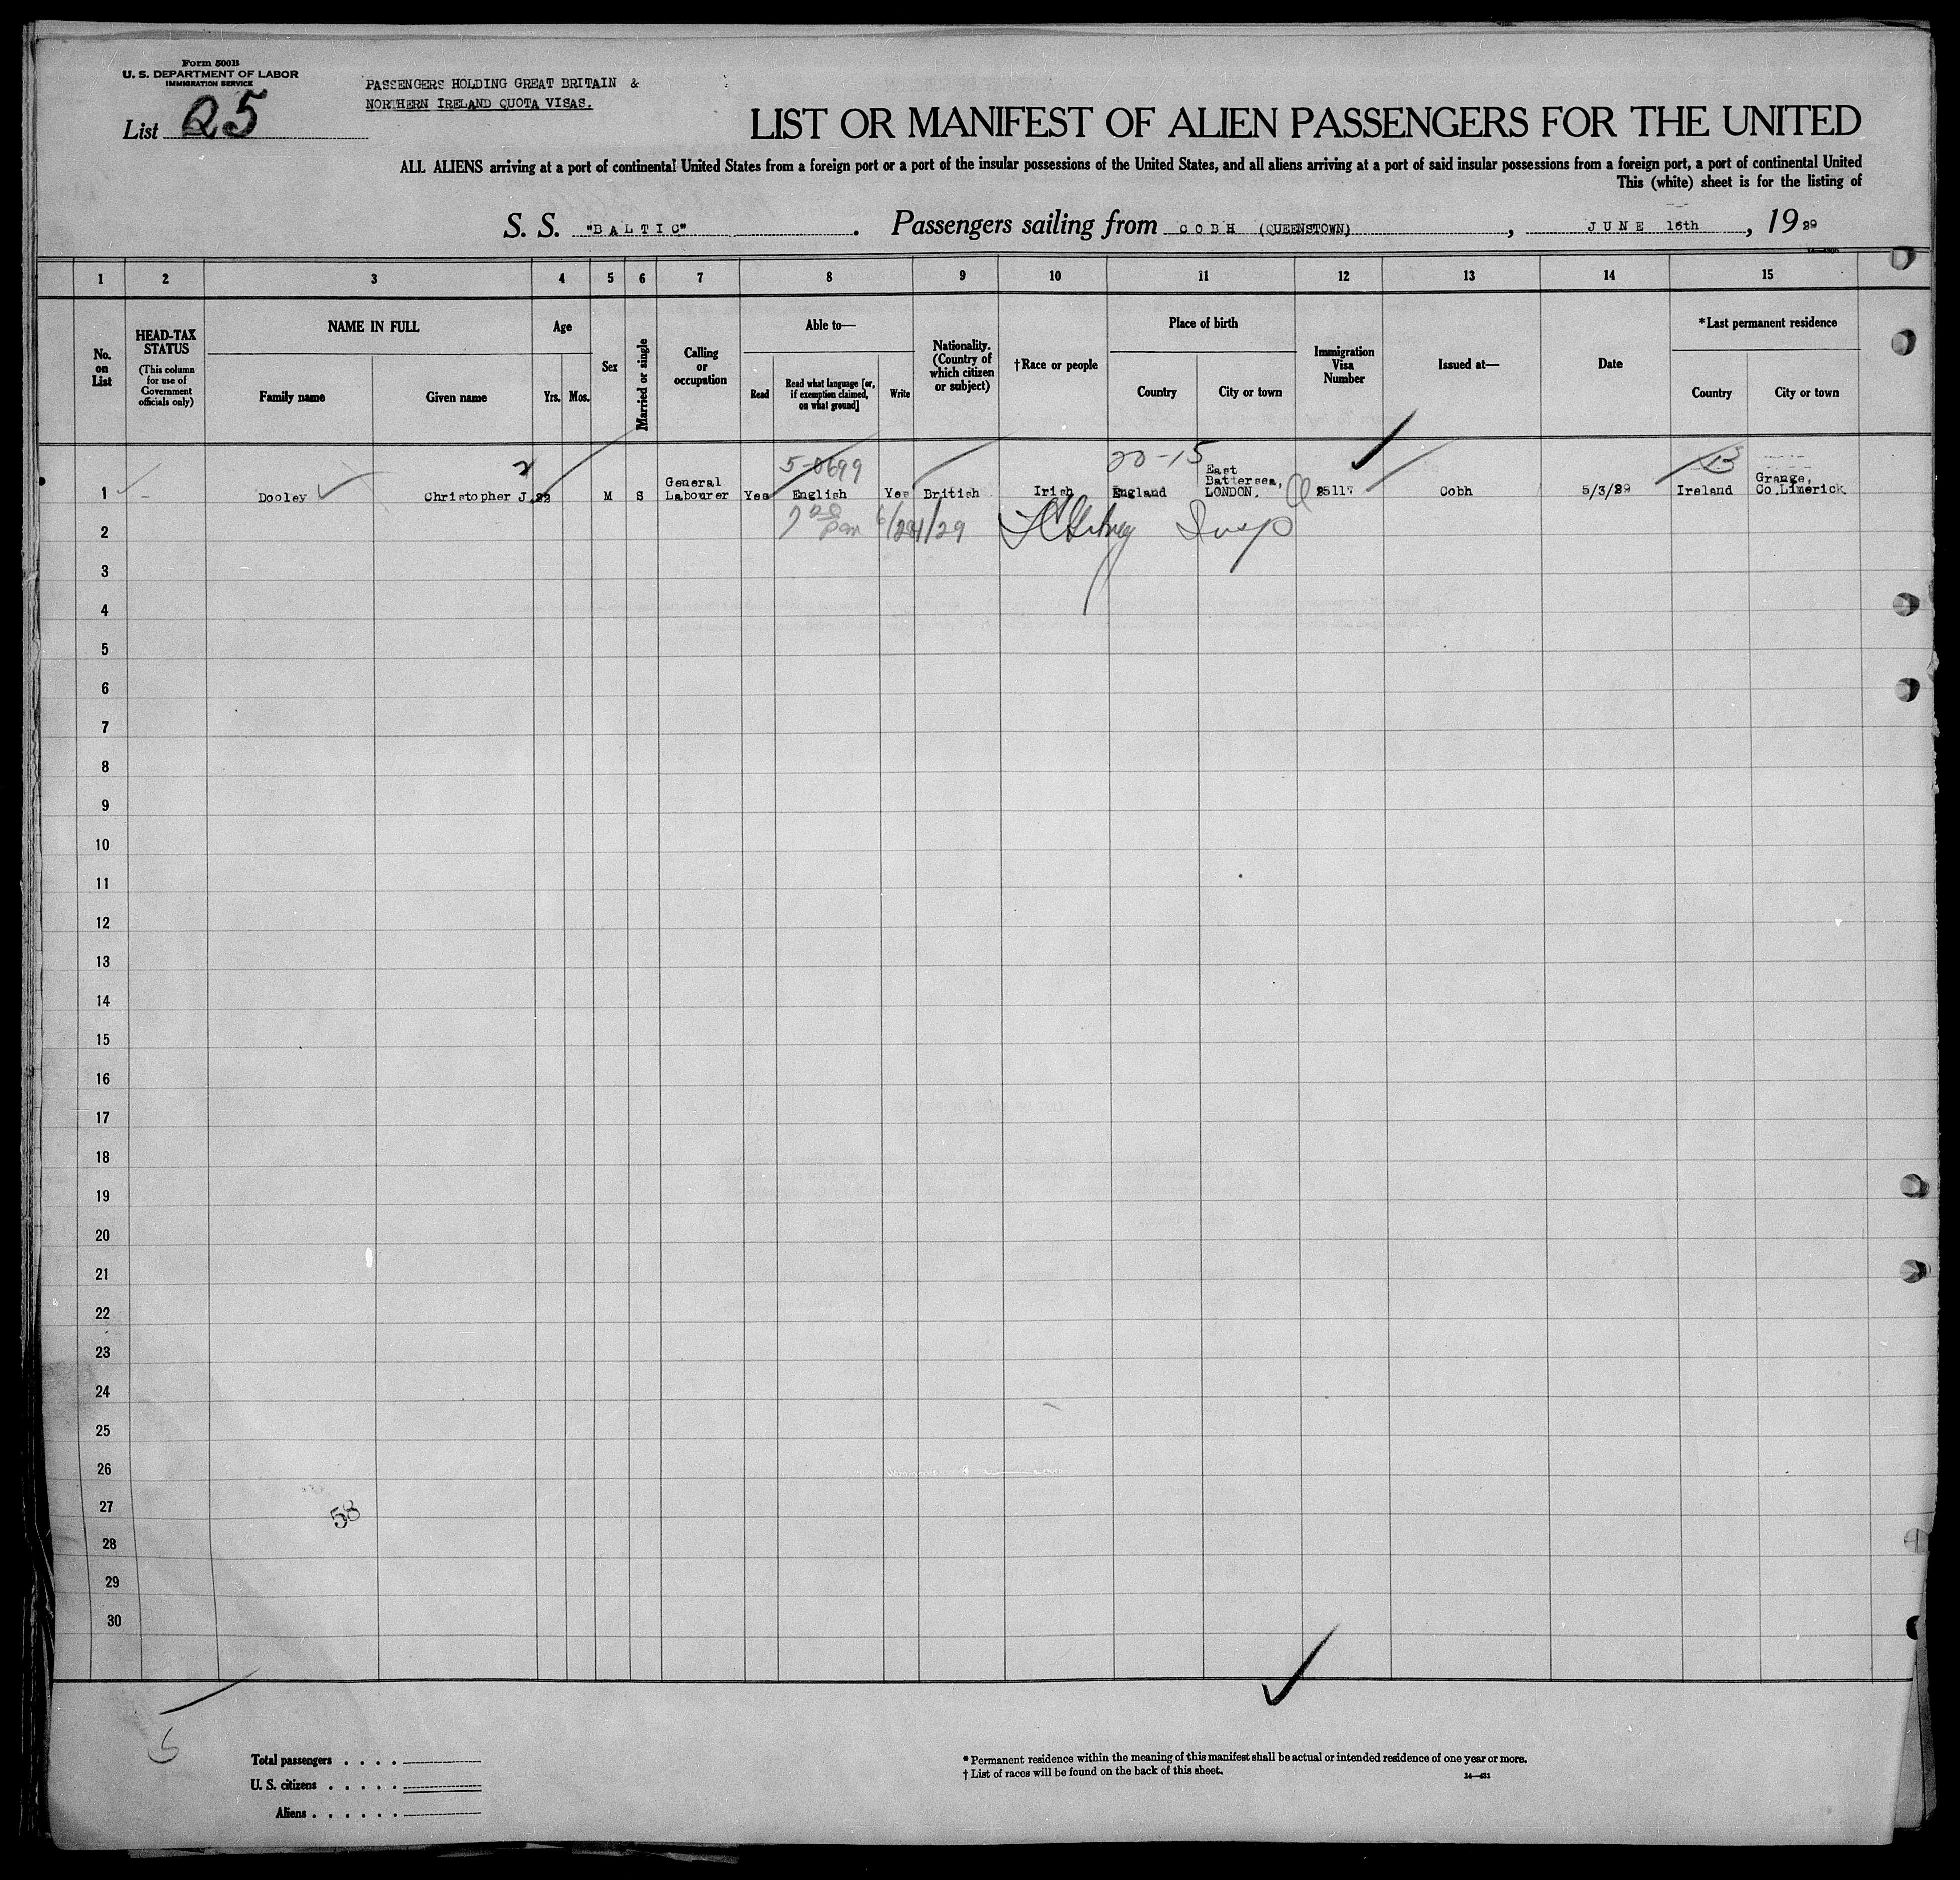 Form 500B
U. S. DEPARTMENT OF LABOR
IMMIGRATION SERVICE
PASSENGERS HOLDING GREAT BRITAIN &
NORTHERN IRELAND QUOTA VISAS.
List 25
LIST OR MANIFEST OF ALIEN PASSENGERS FOR THE UNITED
ALL ALIENS arriving at a port of continental United States from a foreign port or a port of the insular possessions of the United States, and all aliens arriving at a port of said insular possessions from a foreign port, a port of continental United
This (white) sheet is for the listing of
S. S. "BALTIC" . Passengers sailing from COBH (QUEENSTOWN) , JUNE 16th , 19 29
1 2 3 4 5 6 7 8 9 10 11 12 13 14 15
No. on List
HEAD-TAX STATUS
(This column for use of Government officials only)
NAME IN FULL
Family name
Given name
Age
Yrs. Mos.
Sex
Married or single
Calling or occupation
Able to—
Read
Read what language [or, if exemption claimed, on what ground]
Write
Nationality. (Country of which citizen or subject)
†Race or people
Place of birth
Country
City or town
Immigration Visa Number
Issued at—
Date
*Last permanent residence
Country
City or town
2 5-0699 20-15 B
1 – Dooley Christopher J. M S General Labourer Yes English Yes British Irish England East Battersea, LONDON. Cobh 5/3/29 Ireland Grange, Co.Limerick
2 Insp
3
4
5
6
7
8
9
10
11
12
13
14
15
16
17
18
19
20
21
22
23
24
25
26
27
58
28
29
30
Total passengers . . . .
U. S. citizens . . . . .
Aliens . . . . . .
* Permanent residence within the meaning of this manifest shall be actual or intended residence of one year or more.
† List of races will be found on the back of this sheet.
14—431